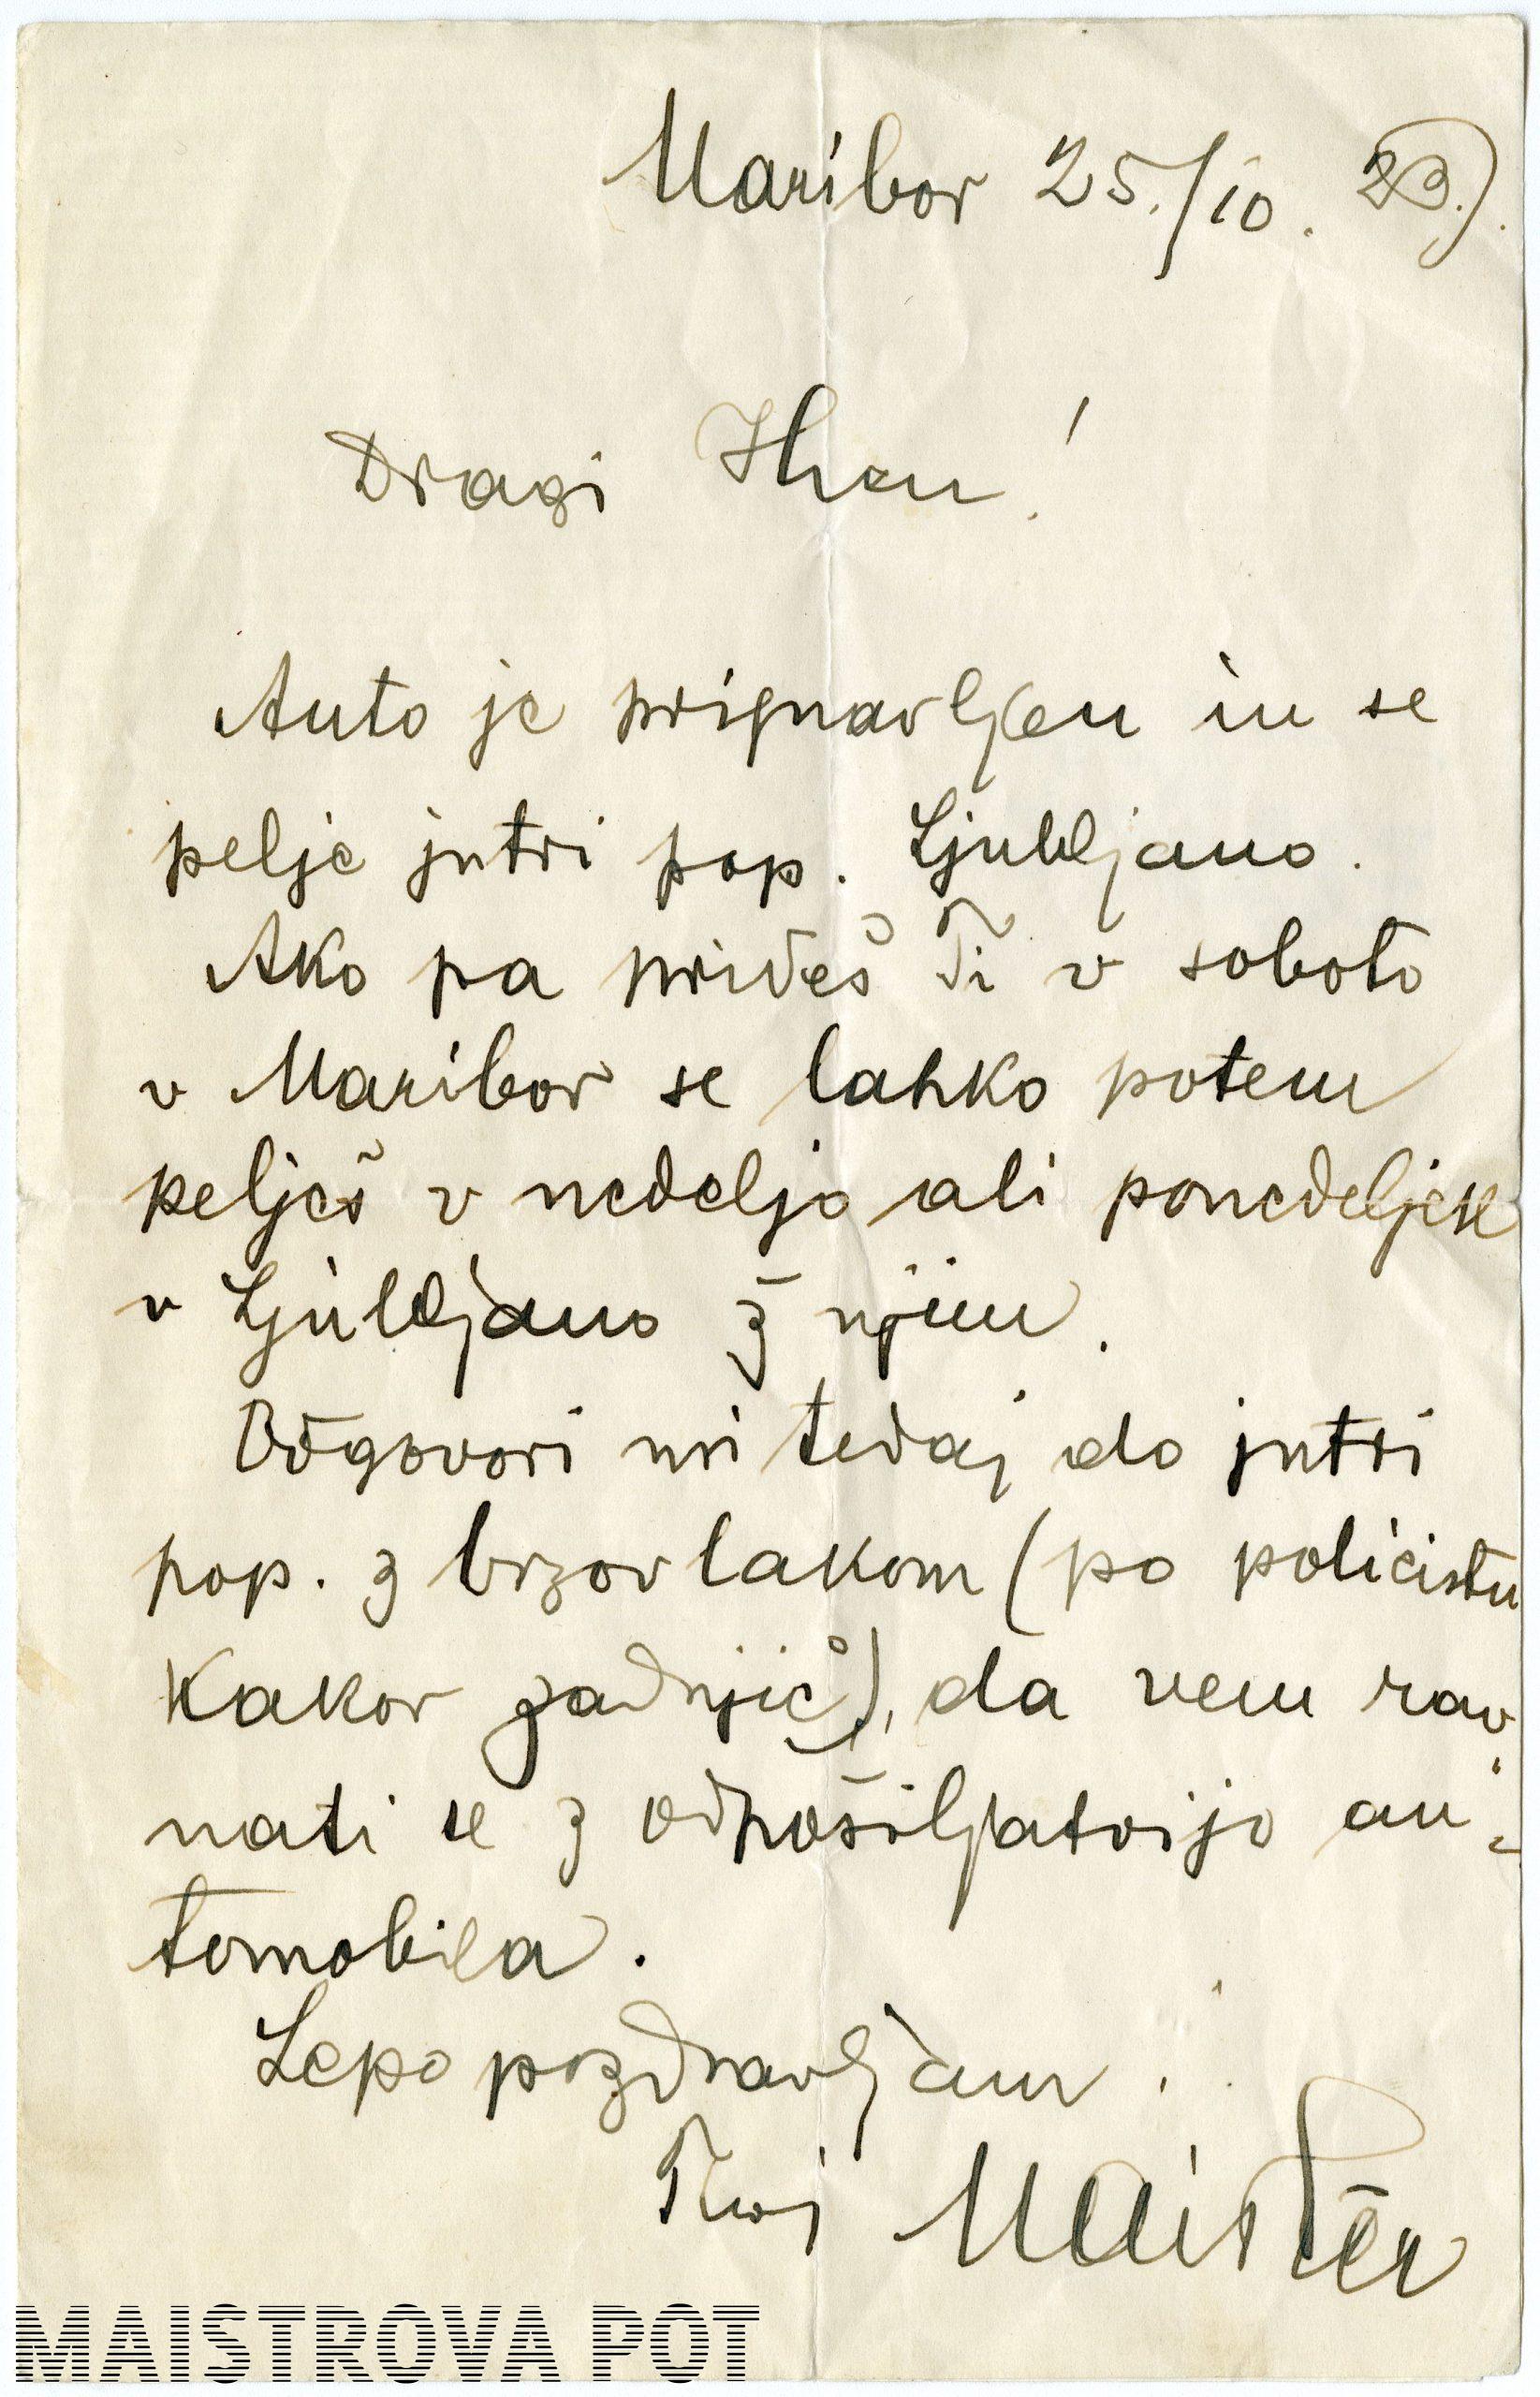 Maribor 25./10. 23.
Dragi
Auto je pripravljen in se
pelje jutri pop. Ljubljano.
Ako pa prideš Ti v soboto
v Maribor se lahko potem
pelješ v nedeljo ali ponedeljek
v Ljubljano ž njim.
Odgovori mi tedaj do jutri
pop. z brzovlakom (po policistu
kakor zadnjič), da vem rav
nati se z odpošiljatvijo au-
tomobila.
Lepo pozdravljam
Tvoj Maister
MAISTROVA POT